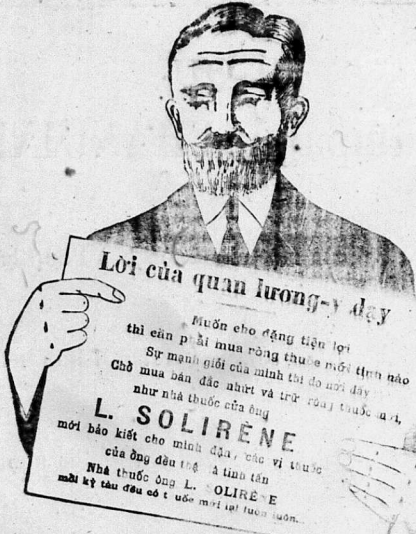 Lời của quan lương-y dạy
Muốn cho đặng tiện lợi
thì cần phải mua ròng thuốc mới tịnh nào
Sự mạnh giỏi của mình thì do nơi đây
Chỗ mua bán đắc nhứt và trữ ròng thuốc mới,
như nhà thuốc của ông
L. SOLIRÈNE
mới bảo kiết cho mình đặn, các vị thuốc
của ổng đều là tinh tấn
Nhà thuốc ông L. SOLIRÈNE
mỗi kỳ tàu đều có t uốc mới lại luôn luôn...